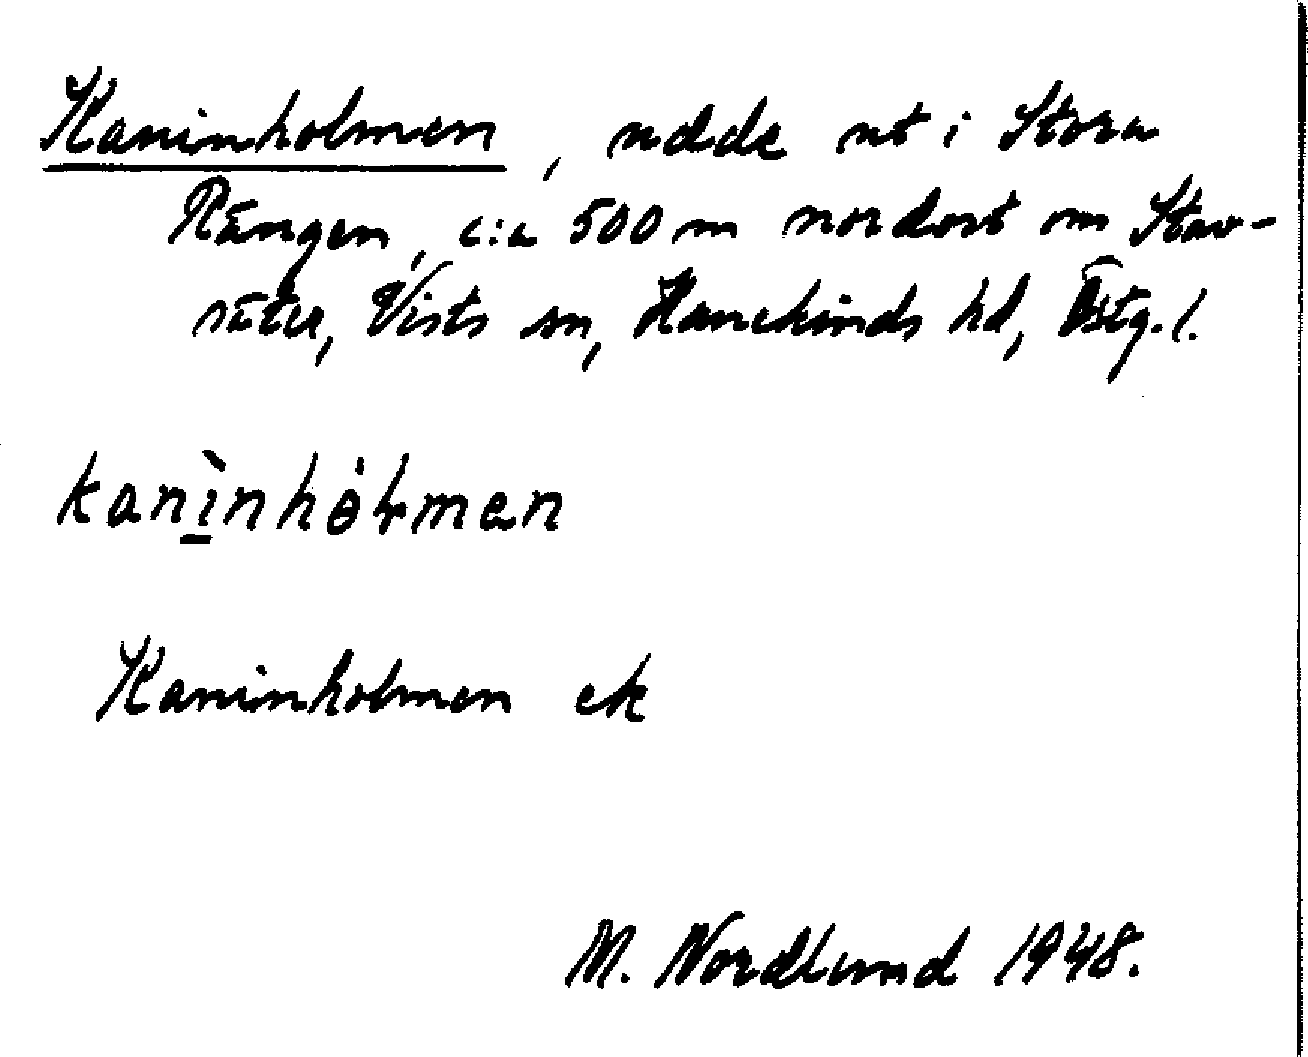 Kaninholmen, udde ut i Stora
Rängen, c:a 500 m nordost om Stav-
säter, Vists sn, Hanekinds hd, Östg. l.
kanìnhɵ́ɫmən
Kaninholmen ek
M. Nordlund 1948.